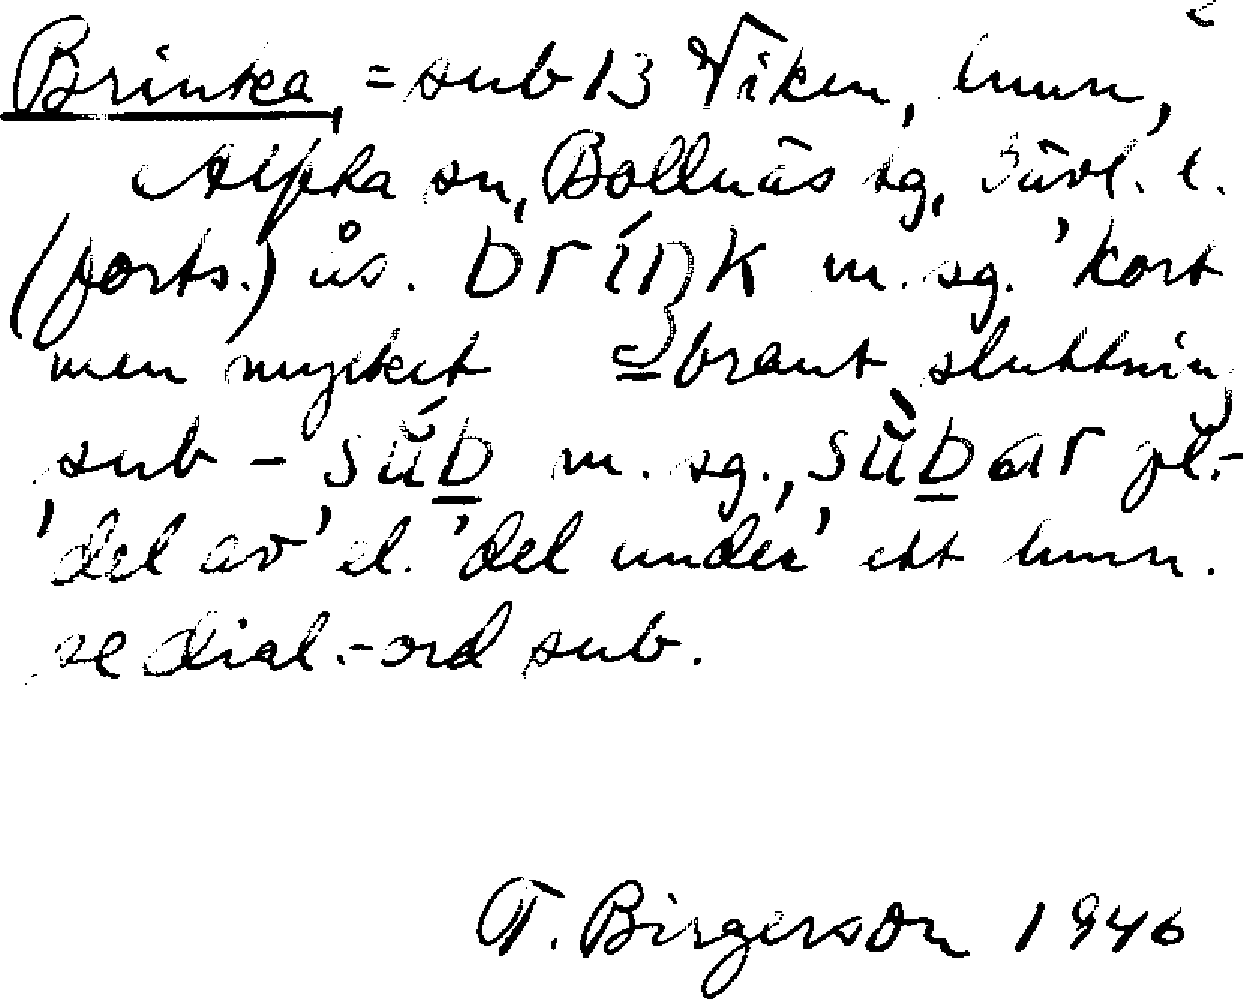 Brinka, = sub 13 Viken, hmn,
Alfta sn, Bollnäs tg, Gävl. l.
(forts.) ås. bríŋk m. sg. 'kort
men mycket brant sluttning
sub – sŭ́b m. sg., sŭ̀bar pl. –
'del av' el. 'del under' ett hmn.
se dial.-ord sub.
T. Birgerson 1946